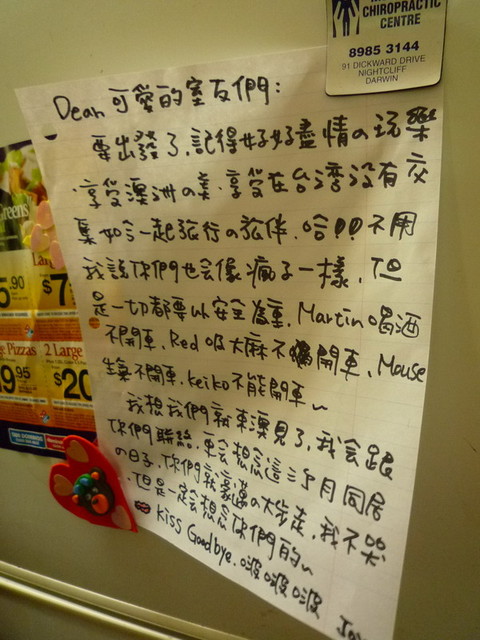 CHIROPRACTIC
CENTRE
8985 3144
91 DICKWARD DRIVE
NIGHTCLIFF
DARWIN
Dear 可愛的室友們：
要出發了，記得好好盡情の玩樂
享受澳洲の美，享受在台灣沒有交
集如今一起旅行の旅伴，哈！！不用
我說你們也會像瘋子一樣，但
是一切都要以安全為重，Martin喝酒
不開車，Red 吸大麻不開車，Mouse
生氣不開車，keiko不能開車~
我想我們就東澳見了，我會跟
你們聯絡，更會想念這三個月同居
の日子，你們就豪邁の大步走，我不哭
但是一定會想念你們的~
Kiss Goodbye. 啵啵啵
5.90
$7
Pizzas
2 Large
9.95
$20